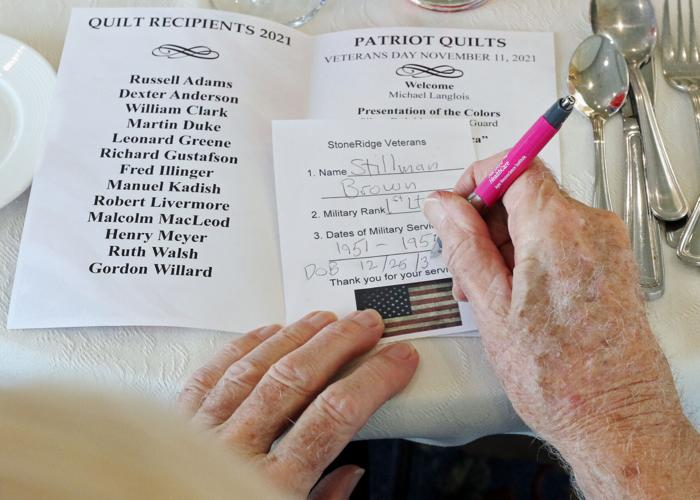 QUILT RECIPIENTS 2021
Russell Adams
Dexter Anderson
William Clark
Martin Duke
Leonard Greene
Richard Gustafson
Fred Illinger
Manuel Kadish
Robert Livermore
Malcolm MacLeod
Henry Meyer
Ruth Walsh
Gordon Willard
PATRIOT QUILTS
VETERANS DAY NOVEMBER 11, 2021
Welcome
Michael Langlois
Presentation of the Colors
Guard
StoneRidge Veterans
1. Name Stillman
Brown
2. Military Rank 1st Lt
3. Dates of Military Servi
1951 - 195
DOB 12/25/3
Thank you for your servi